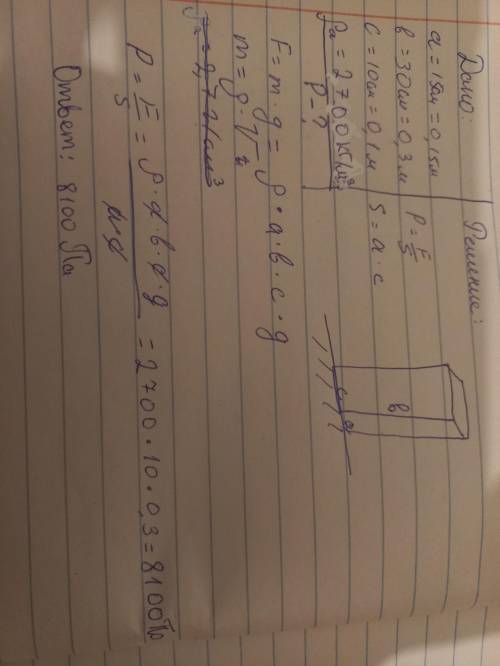 Дано:
a = 15см = 0,15м
в = 30см = 0,3м
c = 10см = 0,1м
ρа = 2700кг/м³
P - ?
Решение:
P = F/S
S = a · c
в
c a
F = m · g = ρ · a · в · c · g
m = ρ · V
P = F/S = ρ · a · в · c · g / a · c = 2700 · 10 · 0,3 = 8100 Па
Ответ: 8100 Па